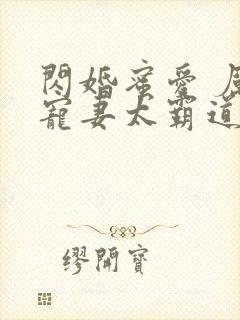 閃婚蜜愛
寵妻太霸道
繆開寶